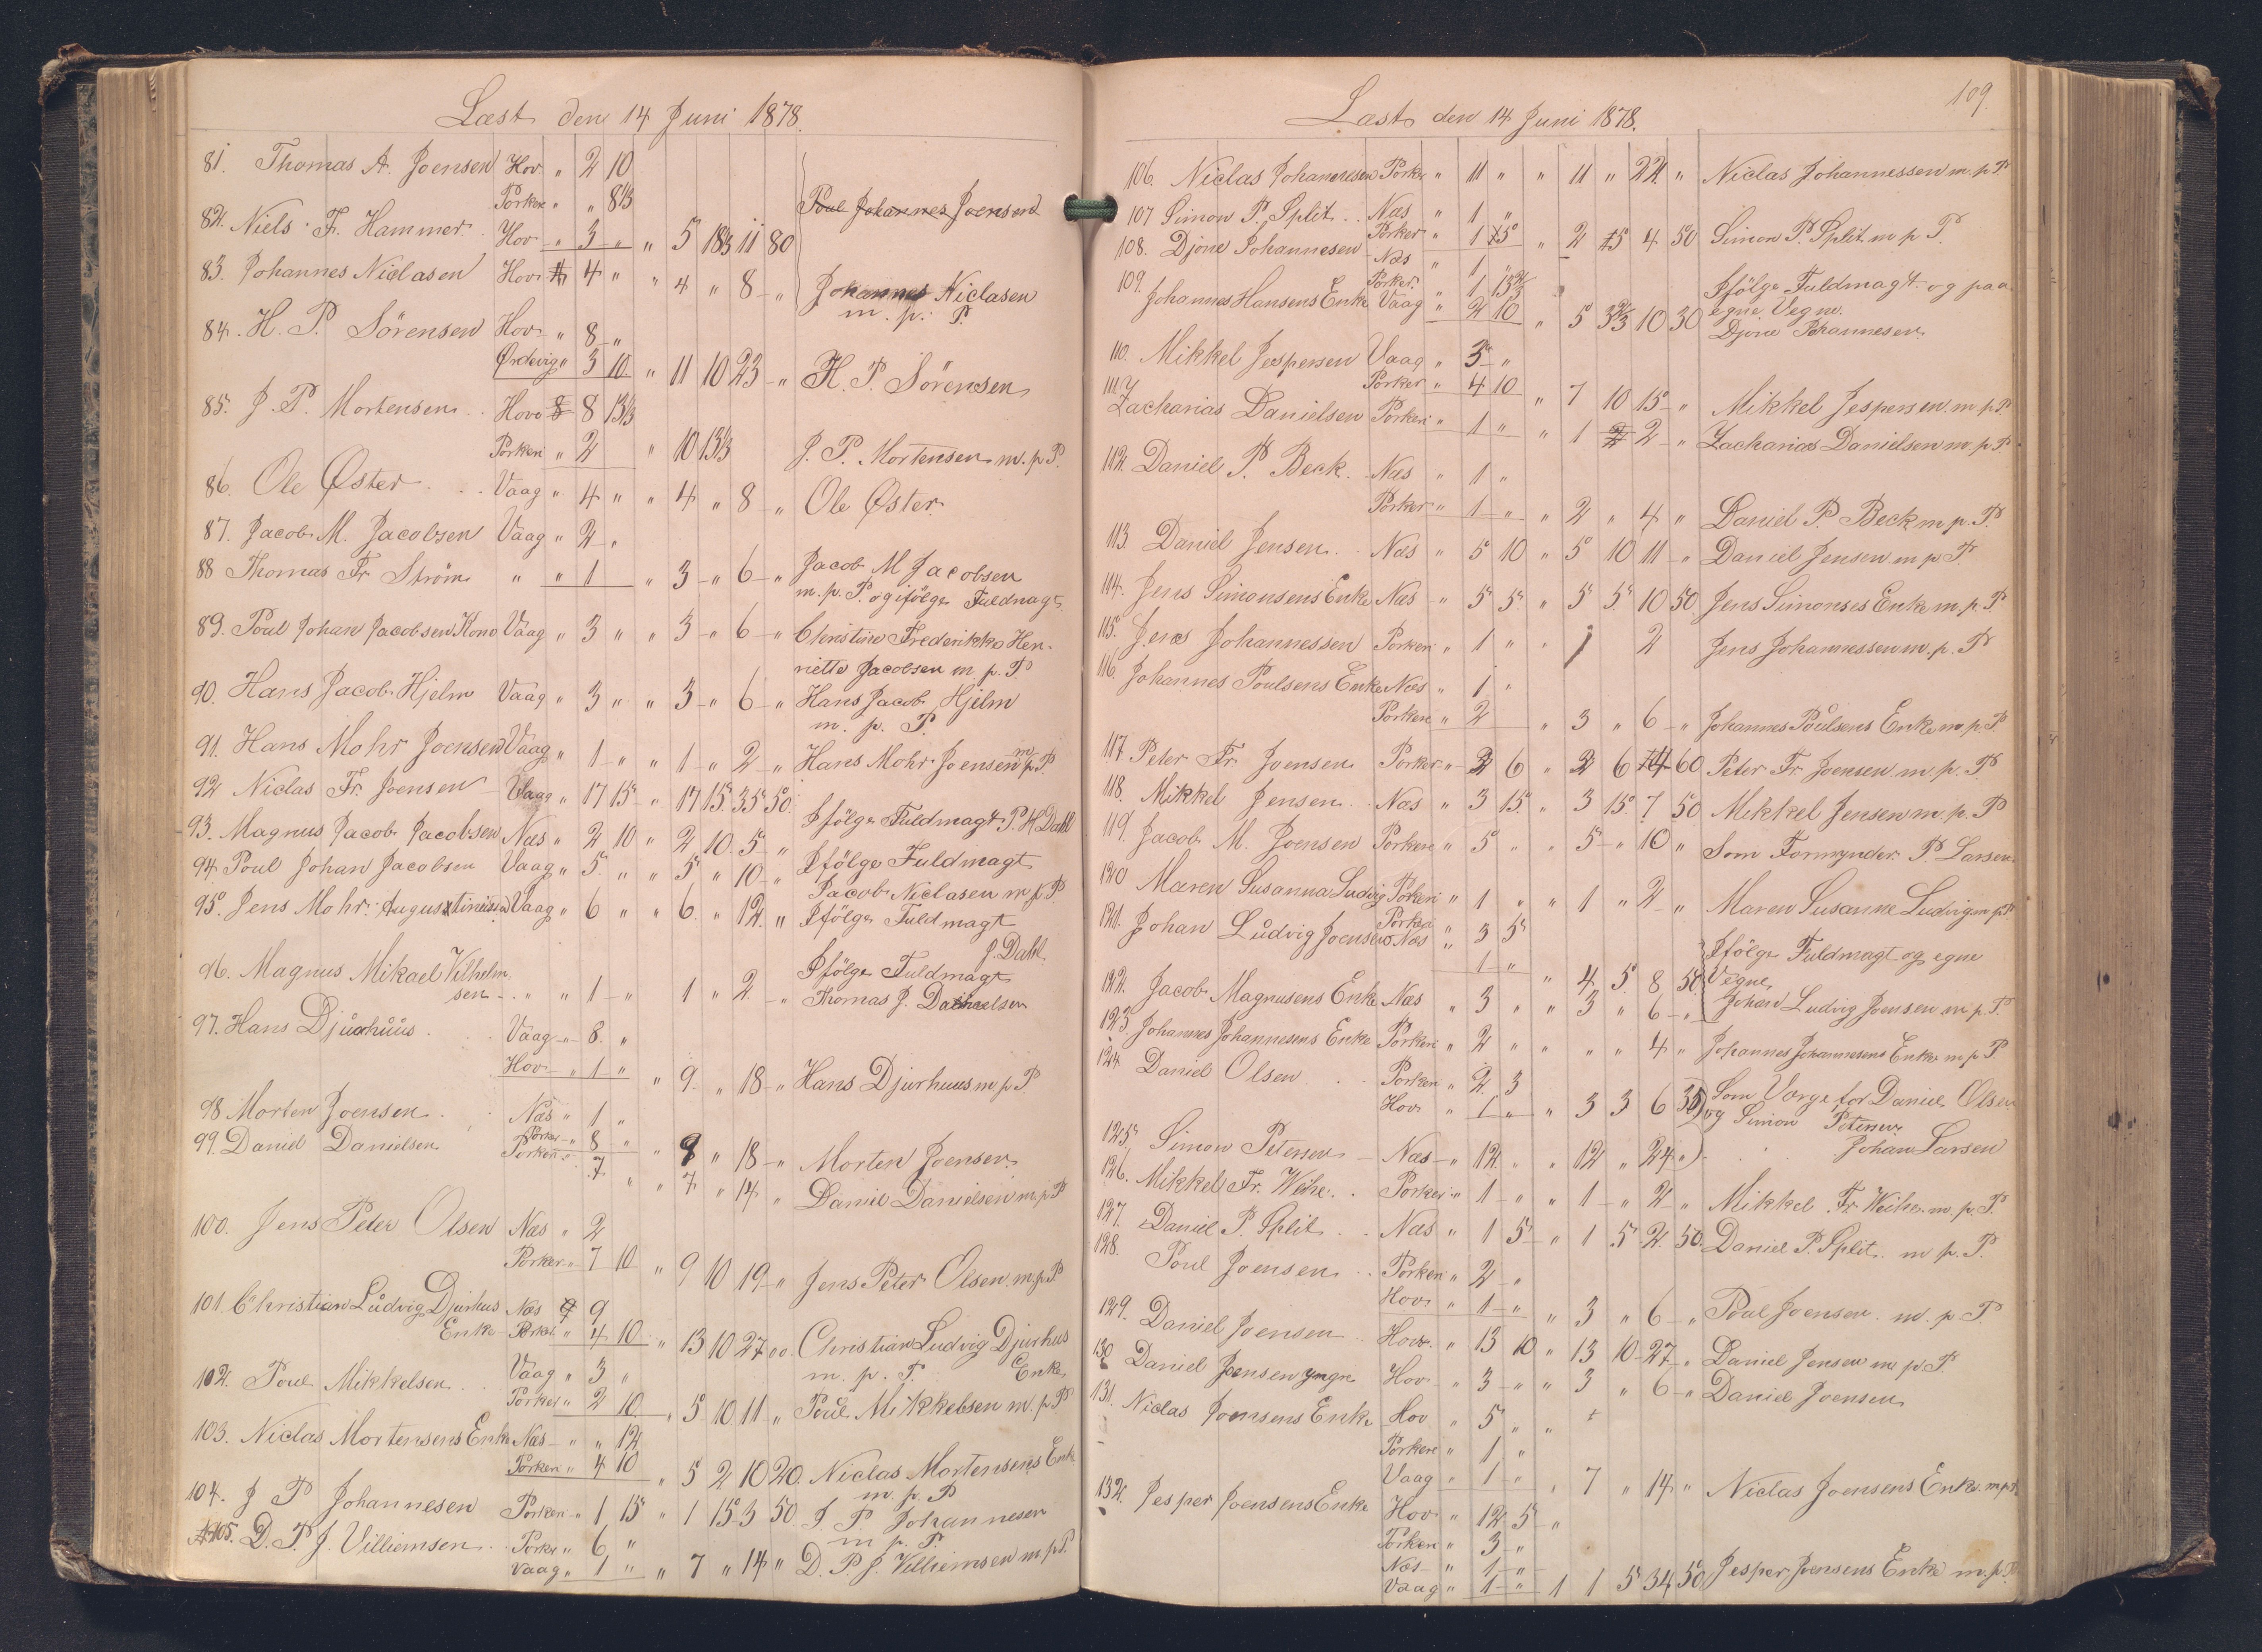 Læst den 14 Juni 1878.
81. Thomas A. Joensen Hov " 2 10
Porkeri " " 8 1/3
82. Niels F. Hammer Hov " 3 " " 5 18 1/3 11 80 Poul Johannes Joensen
83. Johannes Niclasen Hov 4 4 " " 4 " 8 " Johannes Niclasen
m. p. P.
84. H. P. Sörensen Hov " 8 "
Ördevig " 3 10 " 11 10 23 " H. P. Sörensen
85. J. P. Mortensen Hovo 8 8 13 1/3
Porkeri " 2 " 10 13 1/3 J. P. Mortensen m. p P.
86. Ole Øster Vaag " 4 " " 4 " 8 " Ole Øster
87. Jacob M. Jacobsen Vaag " 2 "
88 Thomas Fr Ström " " 1 " 3 " 6 " Jacob M Jacobsen
m. p. P. og ifölge Fuldmagt
89. Poul Johan Jacobsen Kone Vaag " 3 " " 3 " 6 " Christine Frederikke Hen-
riette Jacobsen m. p. P
90. Hans Jacob Hjelm Vaag " 3 " " 3 " 6 " Hans Jacob Hjelm
m. p. P.
91. Hans Mohr Joensen Vaag " 1 " " 1 " 2 " Hans Mohr Joensen m p. P.
92 Niclas Fr. Joensen Vaag " 17 15 " 17 15 35 50 Ifölge Fuldmagt P H Dahl
93. Magnus Jacob Jacobsen Næs " 2 10 " 2 10 5 "
94 Poul Johan Jacobsen Vaag " 5 " " 5 " 10 " Ifölge Fuldmagt
Jacob Niclasen m p P
95. Jens Mohr Augustinusen Vaag " 6 " " 6 " 12 " Ifölge Fuldmagt
J. Dahl.
96. Magnus Mikael Vilhelm
sen " " 1 " 1 " 2 " Ifölge Fuldmagt
Thomas J.
97. Hans Djurhuus Vaag " 8 "
Hov " 1 " " 9 " 18 " Hans Djurhuus m p P.
98 Morten Joensen Næs " 1 "
Porkeri " 8 " " 9 " 18 " Morten Joensen
99. Daniel Danielsen Porkeri " 7 " " 7 " 14 " Daniel Danielsen m p P
100. Jens Peter Olsen Næs " 2
Porkeri " 7 10 " 9 10 19 " Jens Peter Olsen m. p P
101. Christian Ludvig Djurhus Næs 9 9
Enke Porkeri " 4 10 " 13 10 27 00 Christian Ludvig Djurhus
m. p. P. Enke
102. Poul Mikkelsen Vaag " 3 "
Porkeri " 2 10 " 5 10 11 " Poul Mikkelsen m. p P
103. Niclas Mortensens Enke Næs " " 12
Porkeri " 4 10 " 5 2 10 20 Niclas Mortensens Enke
m. p. P
104. J P Johannesen Porkeri " 1 15 " 1 15 3 50 J P Johannesen
m p. P
105. D. P. J. Villiemsen Porkeri " 6 "
Vaag " 1 " " 7 " 14 " D. P. J. Villiemsen m p P.
109.
Læst den 14 Juni 1878.
106. Niclas Johannesen Porkeri " 11 " " 11 " 22 " Niclas Johannessen m. p P
107 Simon P. Split Næs " 1 "
Porkeri " 1 15 " 2 15 4 50 Simon P. Split m p P.
108. Djone Johannesen Næs " 1
Porkeri " 1 13 2/3 Ifölge Fuldmagt og paa
109. Johannes Hansens Enke Vaag " 2 10 " 5 3 2/3 10 30 egne Vegne
Djone Johannesen
110. Mikkel Jespersen Vaag " 3 "
Porkeri " 4 10 " 7 10 15 " Mikkel Jespersen m p P.
111 Zacharias Danielsen Porkeri " 1 " " 1 2 2 " Zacharias Danielsen m. p P
112. Daniel P. Beck Næs " 1 "
Porkeri " 1 " " 2 " 4 " Daniel P. Beck m p. P
113. Daniel Jensen Næs " 5 10 " 5 10 11 " Daniel Jensen m p. P
114. Jens Simonsens Enke Næs " 5 5 " 5 5 10 50 Jens Simonses Enke m. p. P.
115. Jens Johannessen Porkeri " 1 " " 1 2 Jens Johannessen m. p. P
116. Johannes Poulsens Enke Næs " 1 "
Porkeri " 2 " 3 " 6 " Johannes Poulsens Enke m p. P
117. Peter Fr Joensen Porkeri " 2 6 " 2 6 4 60 Peter Fr Joensen m. p. P.
118. Mikkel Jensen Næs " 3 15 " 3 15 7 50 Mikkel Jensen m. p. P
119. Jacob M. Joensen Porkeri " 5 " " 5 " 10 " Som Formynder P. Larsen
120 Maren Susanna Ludvig Porkeri " 1 " " 1 " 2 " Maren Susanne Ludvig m p P
121. Johan Ludvig Joensen Porkeri " 3 5
Næs " 1 " " 4 5 8 50 Ifölge Fuldmagt og egne
Vegne
122. Jacob Magnusens Enke Næs " 3 " " 3 " 6 " Johan Ludvig Joensen m p. P
123 Johannes Johannesens Enke Porkeri " 2 " " " " 4 " Johannes Johannesens Enke m p P
124 Daniel Olsen Porkeri " 2 3
Hov " 1 " " 3 3 6 30 Som Værge for Daniel Olsen
og Simon Petersen
125 Simon Petersen Næs " 12 " " 12 " 24 " Johan Larsen
126. Mikkel Fr. Weihe Porkeri " 1 " " 1 " 2 " Mikkel Fr. Weihe m. p. P.
127. Daniel P. Split Næs " 1 5 " 1 5 2 50 Daniel P. Split m p. P.
128. Poul Joensen Porkeri " 2 "
Hov " 1 " " 3 " 6 " Poul Joensen m. p P
129. Daniel Joensen Hov " 13 10 " 13 10 27 " Daniel Jensen m p. P
130 Daniel Joensen yngre Hov " 3 " " 3 " 6 " Daniel Joensen
131. Niclas Joensens Enke Hov " 5 " "
Porkeri " 1 "
Vaag " 1 " " 7 " 14 " Niclas Joensens Enke m p P
132. Jesper Joensens Enke Hov " 12 5 "
Porkeri " 3 "
Næs " 1 "
Vaag " 1 " 1 1 5 34 50 Jesper Joensens Enke m. p. P